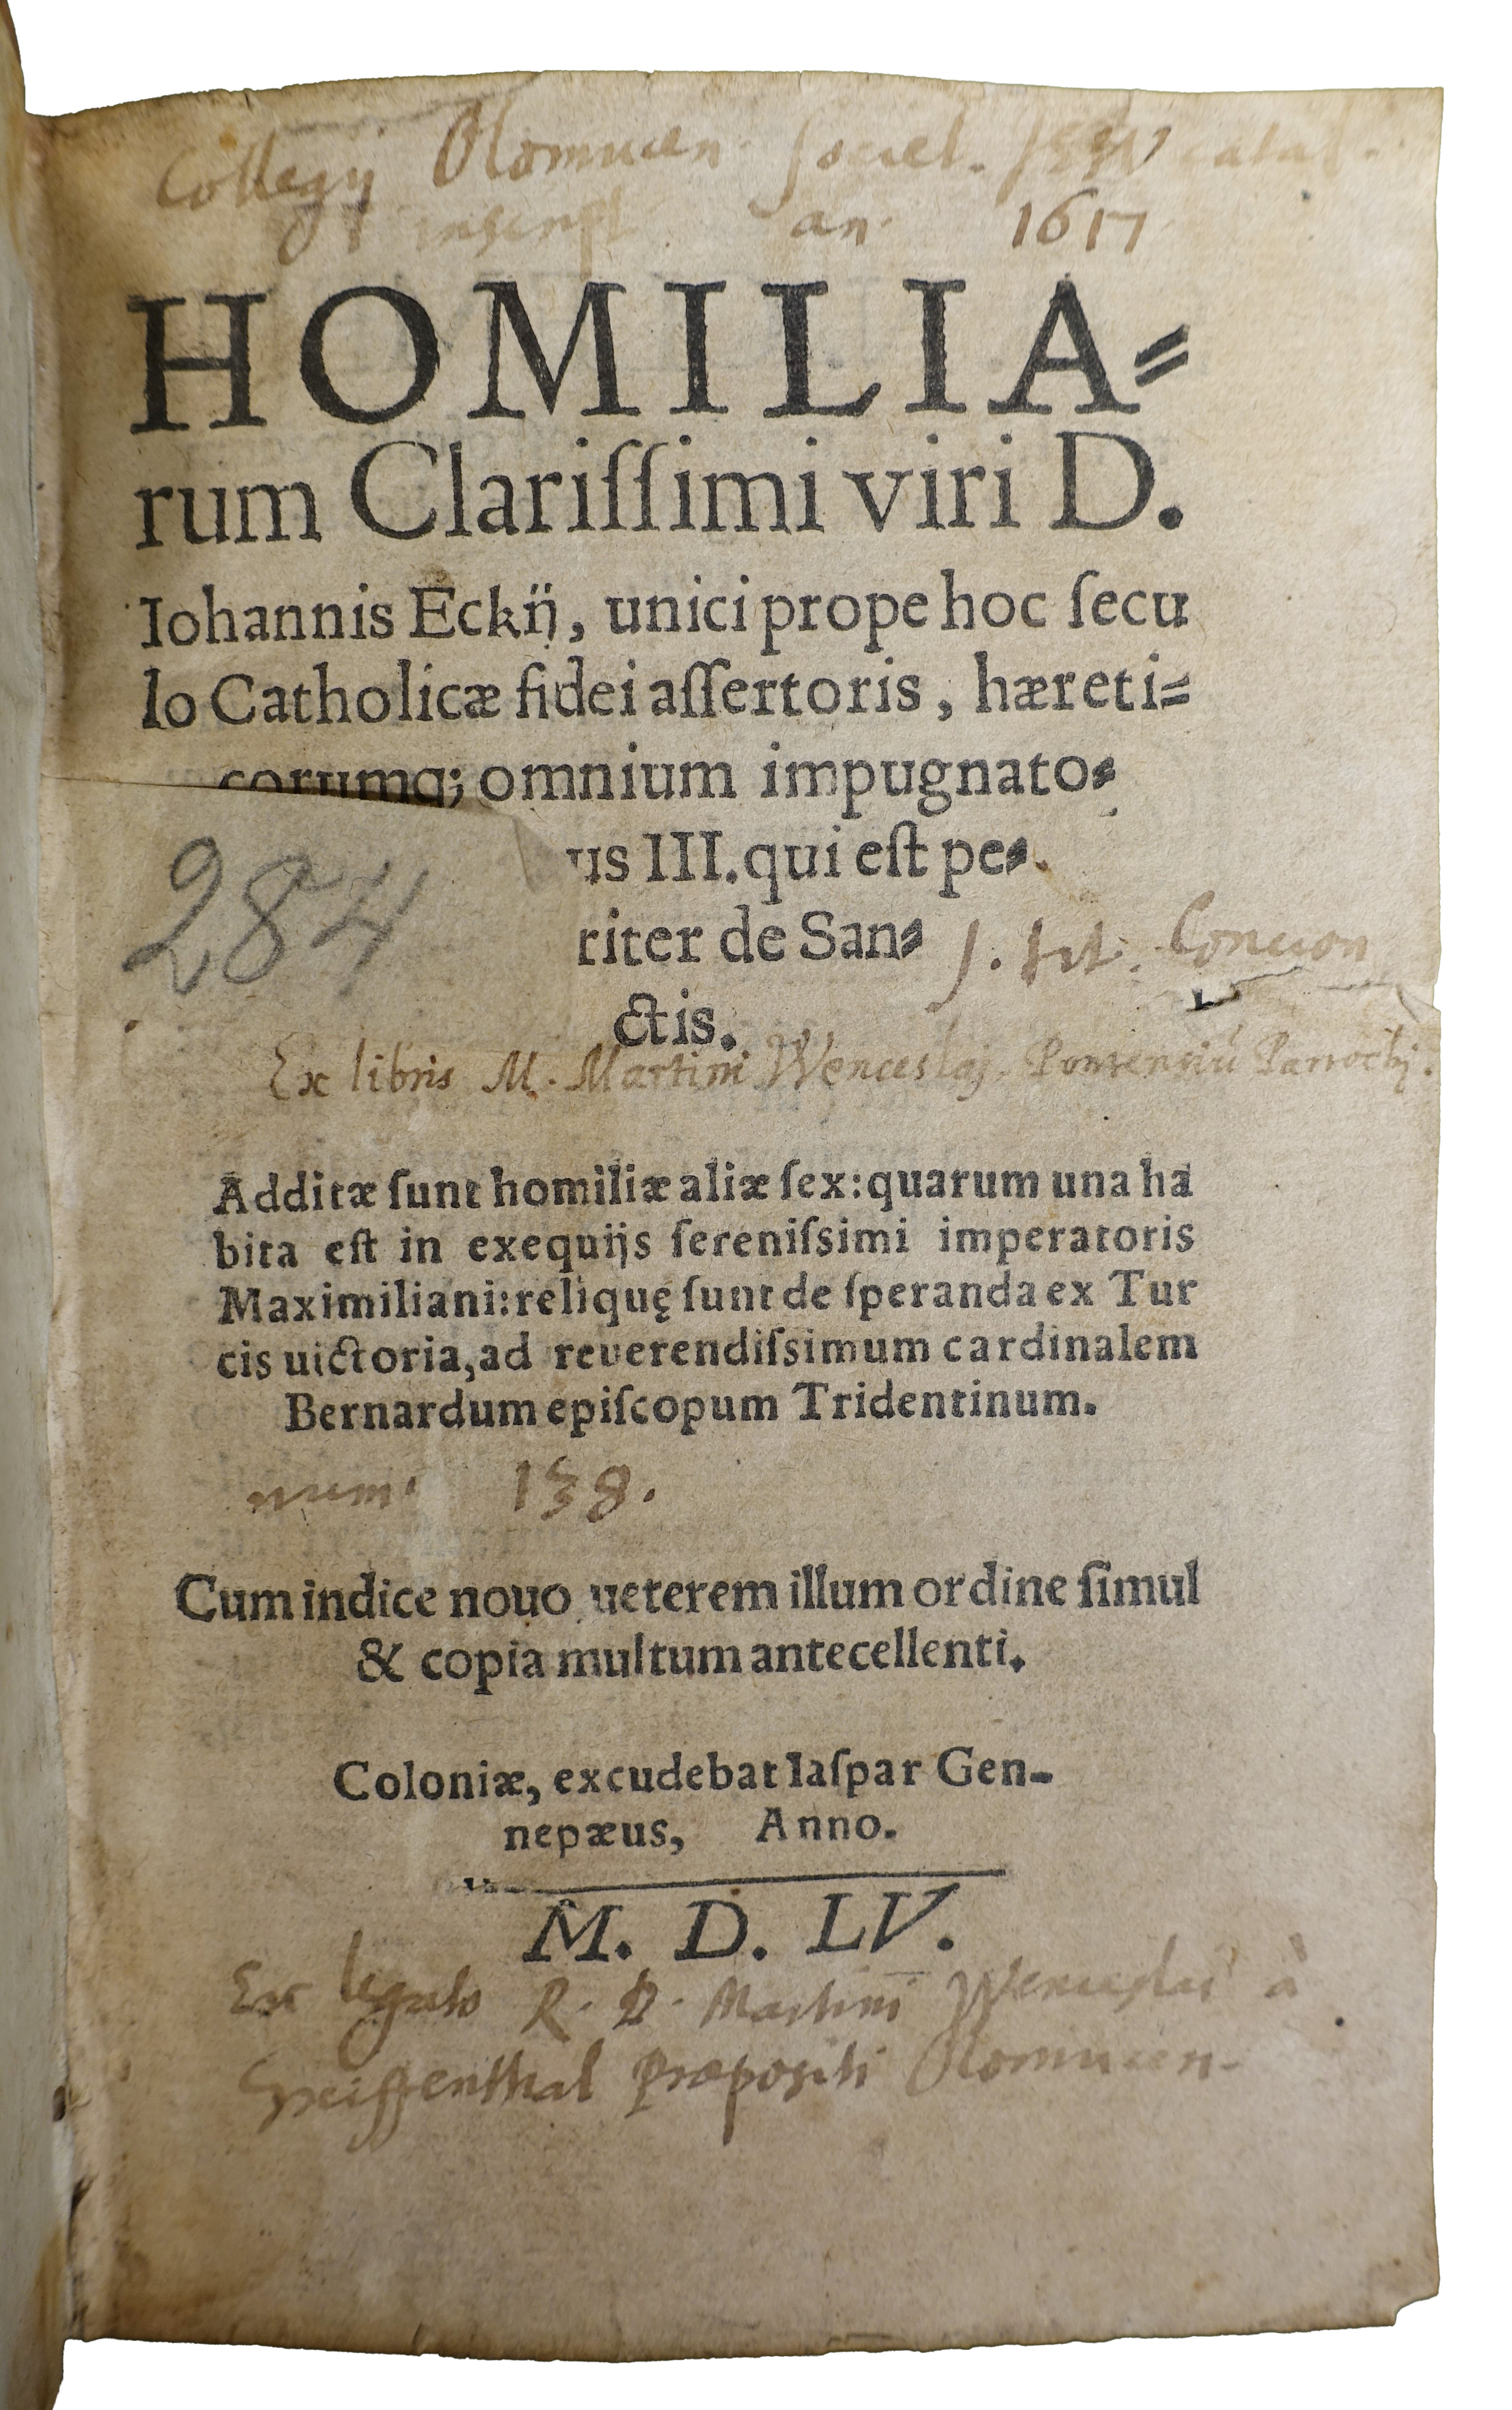 Collegij Olomucen. Societ. Jesu catal.
inscript. an. 1617
HOMILIA⸗
rum Clariſſimi viri D.
Iohannis Eckij, unici prope hoc ſecu
lo Catholicæ fidei aſſertoris, hæreti⸗
corumq; omnium impugnato⸗
us III. qui eſt pe⸗.
284
riter de San⸗
Concion
ctis.
Ex libris M. Martini Wenceslaj. Parrochj.
Additæ ſunt homiliæ aliæ ſex: quarum una ha
bita eſt in exequijs ſereniſsimi imperatoris
Maximiliani: reliquę ſunt de ſperanda ex Tur
cis uictoria, ad reuerendiſsimum cardinalem
Bernardum epiſcopum Tridentinum.
num. 138.
Cum indice nouo ueterem illum ordine ſimul
& copia multum antecellenti.
Coloniæ, excudebat Iaſpar Gen-
nepæus, Anno.
M. D. LV.
Ex legato R. D. Martini Wenceslai à
Greiffenthal Præpositi Olomucen.